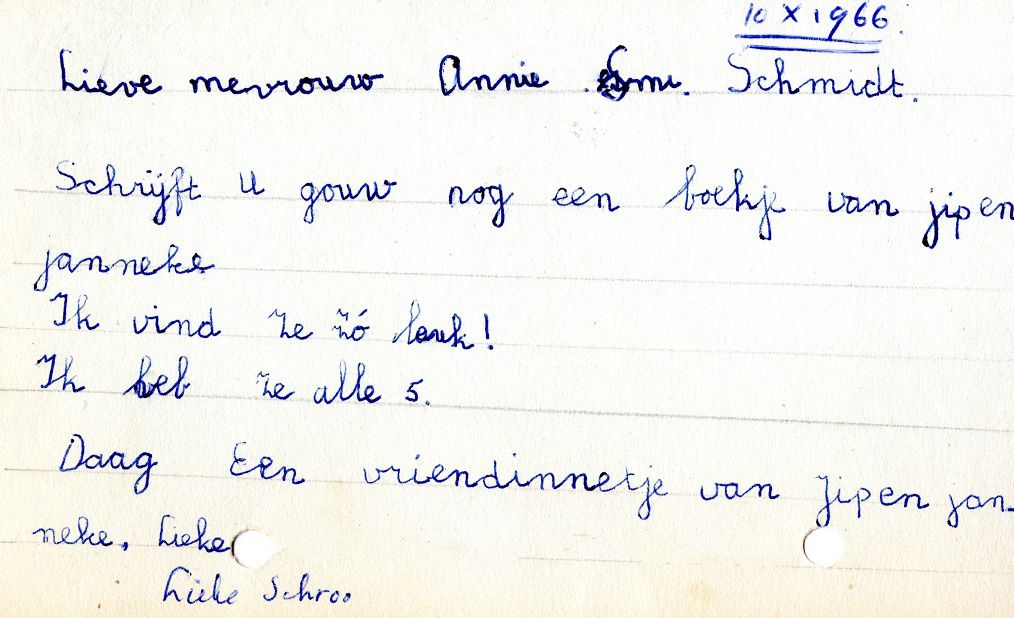 10 X 1966.
Lieve mevrouw Annie Schmidt.
Schrijft u gouw nog een boekje van jip en
janneke
Ik vind ze zó leuk!
Ik heb ze alle 5.
Daag Een vriendinnetje van Jip en jan-
neke. Lieke
Lieke Schroo